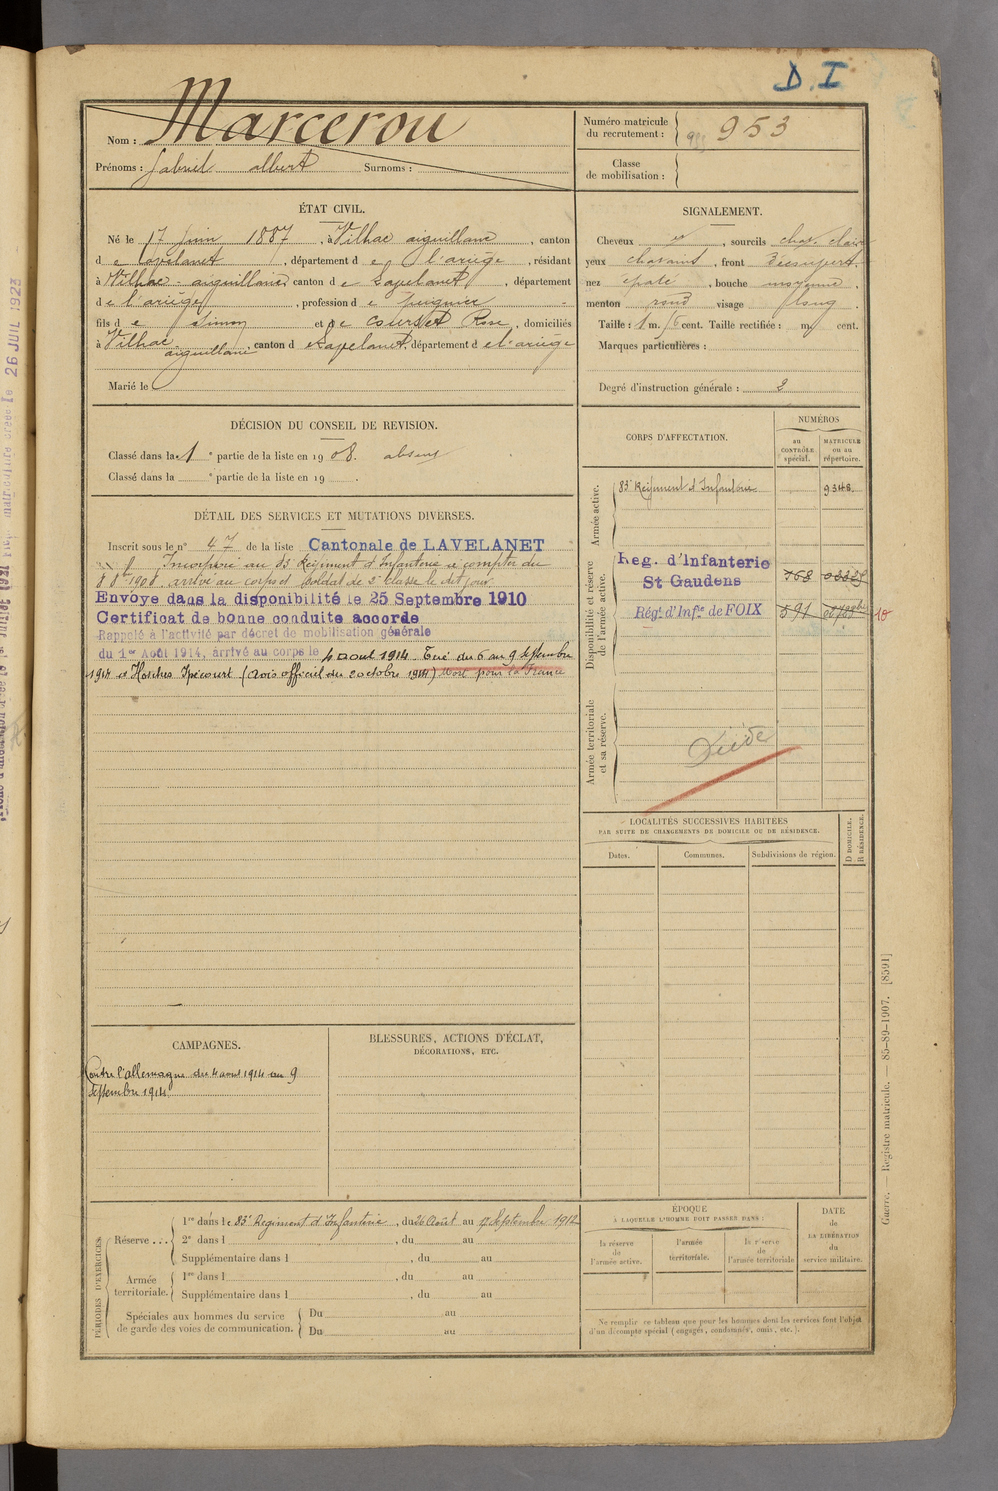 D. I
Nom : Marcerou
Prénoms : Gabriel Albert Surnoms :
Numéro matricule
du recrutement : 953
Classe
de mobilisation :
ÉTAT CIVIL.
Né le 17 Juin 1887, à Vilhac aiguillane, canton
de Lavelanet, département de l'ariège, résidant
à Vilhac-aiguillane canton de Lavelanet, département
de l'ariège, profession de
fils de Simon et de Rose, domiciliés
à Vilhac aiguillane, canton de Lavelanet, département de l'ariège
Marié le
SIGNALEMENT.
Cheveux , sourcils chat. clair
yeux chatains, front découvert,
nez épaté, bouche moyenne,
menton rond visage long
Taille : 1 m. cent. Taille rectifiée : m. cent.
Marques particulières :
Degré d'instruction générale : 2
DÉCISION DU CONSEIL DE REVISION.
Classé dans la 1e partie de la liste en 1908. absent
Classé dans la e partie de la liste en 19 .
CORPS D'AFFECTATION.
NUMÉROS
au
CONTRÔLE
spécial.
MATRICULE
ou au
répertoire.
Armée active.
83e Régiment d'Infanterie 9348.
Disponibilité et réserve
de l'armée active.
Reg. d'Infanterie
St Gaudens 768
Régt d'Infie de FOIX 591
10
Armée territoriale
et sa réserve.
Décédé
DÉTAIL DES SERVICES ET MUTATIONS DIVERSES.
Inscrit sous le n° 47 de la liste Cantonale de LAVELANET
Incorporé au 83 Régiment d'Infanterie à compter du
8 8bre 1908 arrivé au corps et soldat de 2e classe le dit jour.
Envoyé dans la disponibilité le 25 Septembre 1910
Certificat de bonne conduite accordé
Rappelé à l'activité par décret de mobilisation générale
du 1er Août 1914, arrivé au corps le 4 aout 1914. Tué du 6 au 9 septembre
1914 à (avis officiel du 2 octobre 1914) Mort pour la France
LOCALITÉS SUCCESSIVES HABITÉES
PAR SUITE DE CHANGEMENTS DE DOMICILE OU DE RÉSIDENCE.
Dates. Communes. Subdivisions de région.
D DOMICILE.
R RÉSIDENCE.
CAMPAGNES.
Contre l'allemagne du 4 aout 1914 au 9
septembre 1914.
BLESSURES, ACTIONS D'ÉCLAT,
DÉCORATIONS, ETC.
PÉRIODES D'EXERCICES
Réserve ...
1re dans le 83e Regiment d'Infanterie, du 26 Août au Septembre 1912
2e dans l , du au
Supplémentaire dans l , du au
Armée
territoriale.
1re dans l , du au
Supplémentaire dans l , du au
Spéciales aux hommes du service
de garde des voies de communication.
Du au
Du au
ÉPOQUE
À LAQUELLE L'HOMME DOIT PASSER DANS :
la réserve
de
l'armée active.
l'armée
territoriale.
la réserve
de
l'armée territoriale
DATE
de
LA LIBÉRATION
du
service militaire.
Ne remplir ce tableau que pour les hommes dont les services font l'objet
d'un décompte spécial (engagés, condamnés, omis, etc.).
Guerre. — Registre matricule. — 85-89-1907. [8591]
26 JUIL 1923